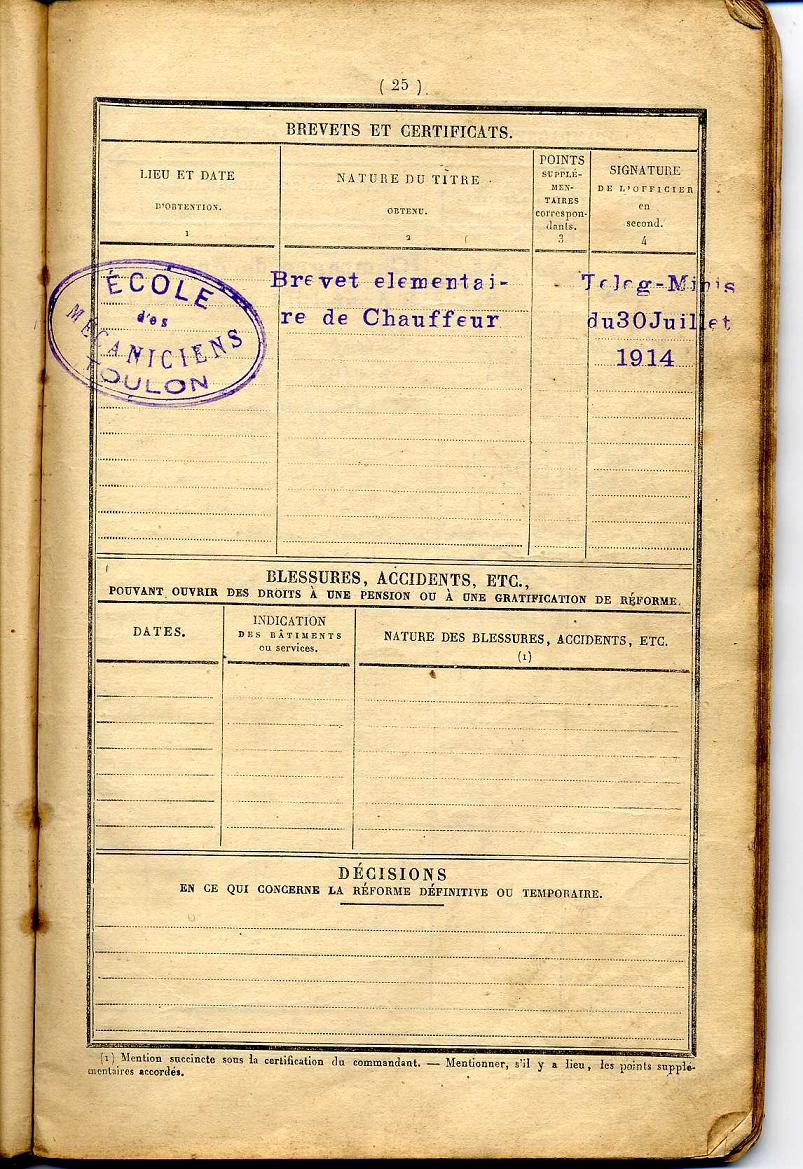 ( 25 )
BREVETS ET CERTIFICATS.
LIEU ET DATE
D'OBTENTION.
1
NATURE DU TITRE
OBTENU.
2
POINTS
SUPPLÉ-
MEN-
TAIRES
correspon-
dants.
3
SIGNATURE
DE L'OFFICIER
en
second.
4
ÉCOLE
des
MÉCANICIENS
TOULON
Brevet elementai-
re de Chauffeur
Teleg-Minis
du 30 Juillet
1914
BLESSURES, ACCIDENTS, ETC.,
POUVANT OUVRIR DES DROITS À UNE PENSION OU À UNE GRATIFICATION DE RÉFORME.
DATES.
INDICATION
DES BÂTIMENTS
ou services.
NATURE DES BLESSURES, ACCIDENTS, ETC.
(1)
DÉCISIONS
EN CE QUI CONCERNE LA RÉFORME DÉFINITIVE OU TEMPORAIRE.
(1) Mention succincte sous la certification du commandant. — Mentionner, s'il y a lieu, les points supplé-
mentaires accordés.